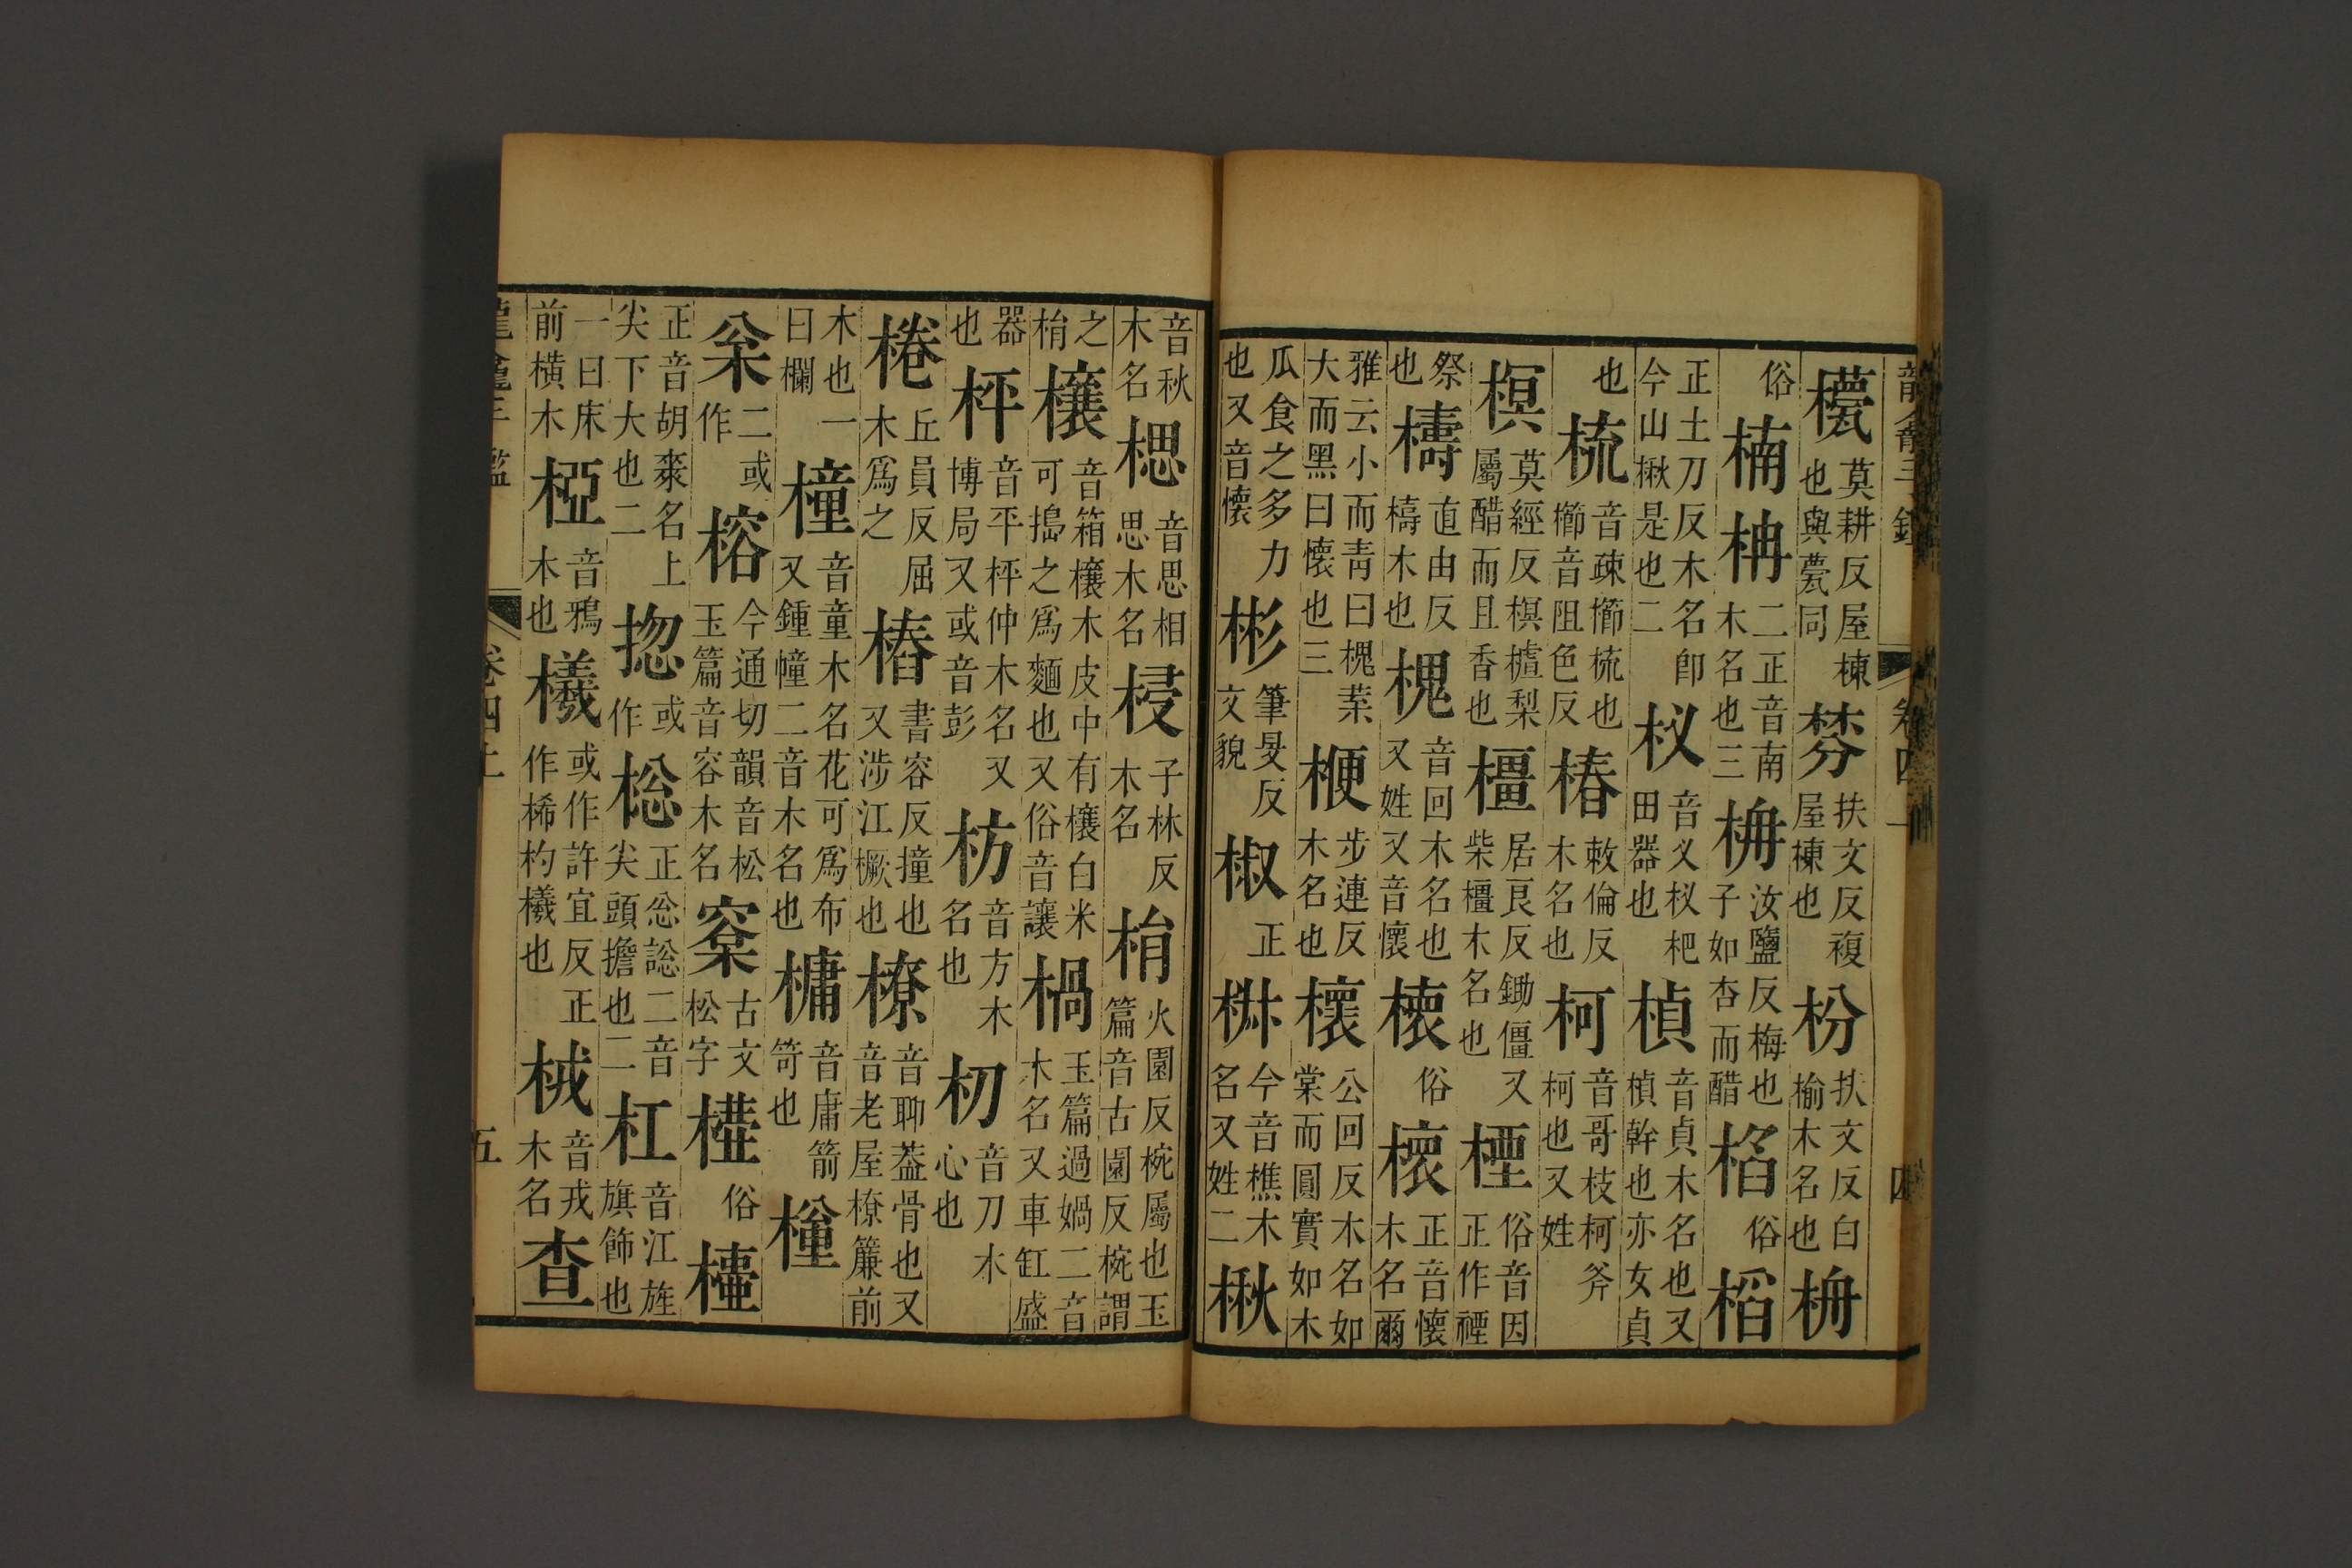 龍龕手鑑 卷四上 四
莫耕反屋棟也與甍同 棼 扶文反複屋棟也 枌 扶文反白榆木名也
俗 楠 枏 二正音南木名也三 汝鹽反梅也子如杏而醋 俗 槄
正土刀反木名卽今山楸是也二 杈 音义杈杷田器也 楨 音貞木名也又楨幹也亦女貞
也 梳 音疎櫛梳也櫛音阻色反 椿 敕倫反木名也 柯 音哥枝柯斧柯也又姓
榠 莫經反榠樝梨屬醋而且香也 橿 居良反鋤僵又柴橿木名也 俗音因正作禋
祭也 檮 直由反檮木也 槐 音回木名也又姓又音懷 俗 正音懷木名爾
雅云小而靑曰槐葉大而黑曰懷也三 楩 步連反木名也 櫰 公回反木名如棠而圓實如木
瓜食之多力也又音懷 彬 筆旻反文貌 椒 正 今音樵木名又姓二 楸
音秋木名 楒 音思相思木名 梫 子林反木名 梋 火園反椀屬也玉篇音古園反椀謂
之梋 欀 音箱欀木皮中有欀白米可搗之爲麵也又俗音讓 楇 玉篇過媧二音木名又車缸盛
器也 枰 音平枰仲木名又博局又或音彭 枋 音方木名也 朷 音刀木心也
棬 丘員反屈木爲之 樁 書容反撞也又涉江橛也 橑 音聊葢骨也又音老屋橑簾前
木也一曰欄 橦 音童木名花可爲布又鍾幢二音木名也 槦 音庸箭笴也
枀 二或作 榕 今通切韻音松玉篇音容木名 㮤 古文松字 俗
正音胡名上尖下大也二 揔 或作 棇 正忩謥二音尖頭擔也二 杠 音江旌旗飾也
一曰床前橫木 椏 音鴉木也 㰕 或作許宜反正作桸杓㰕也 㭜 音戎木名 查
龍龕手鑑 卷四上 五